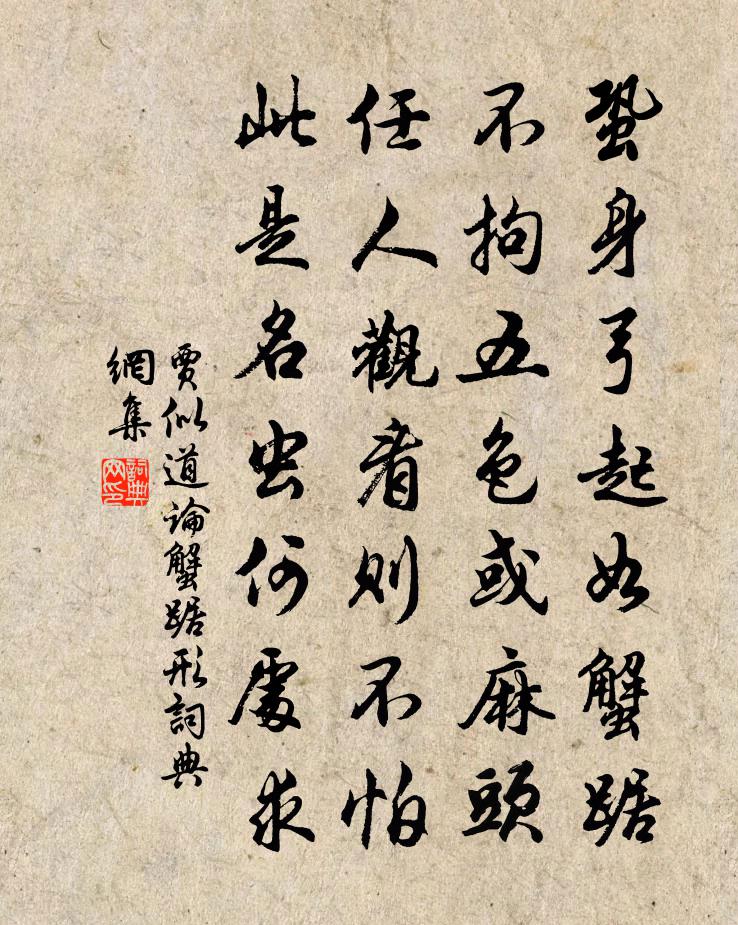 蛩身弓起如蟹踞
不拘五色或麻頭
任人觀看則不怕
此是名虫何處求
賈似道論蟹踞形詞典
網集
詞典
网印